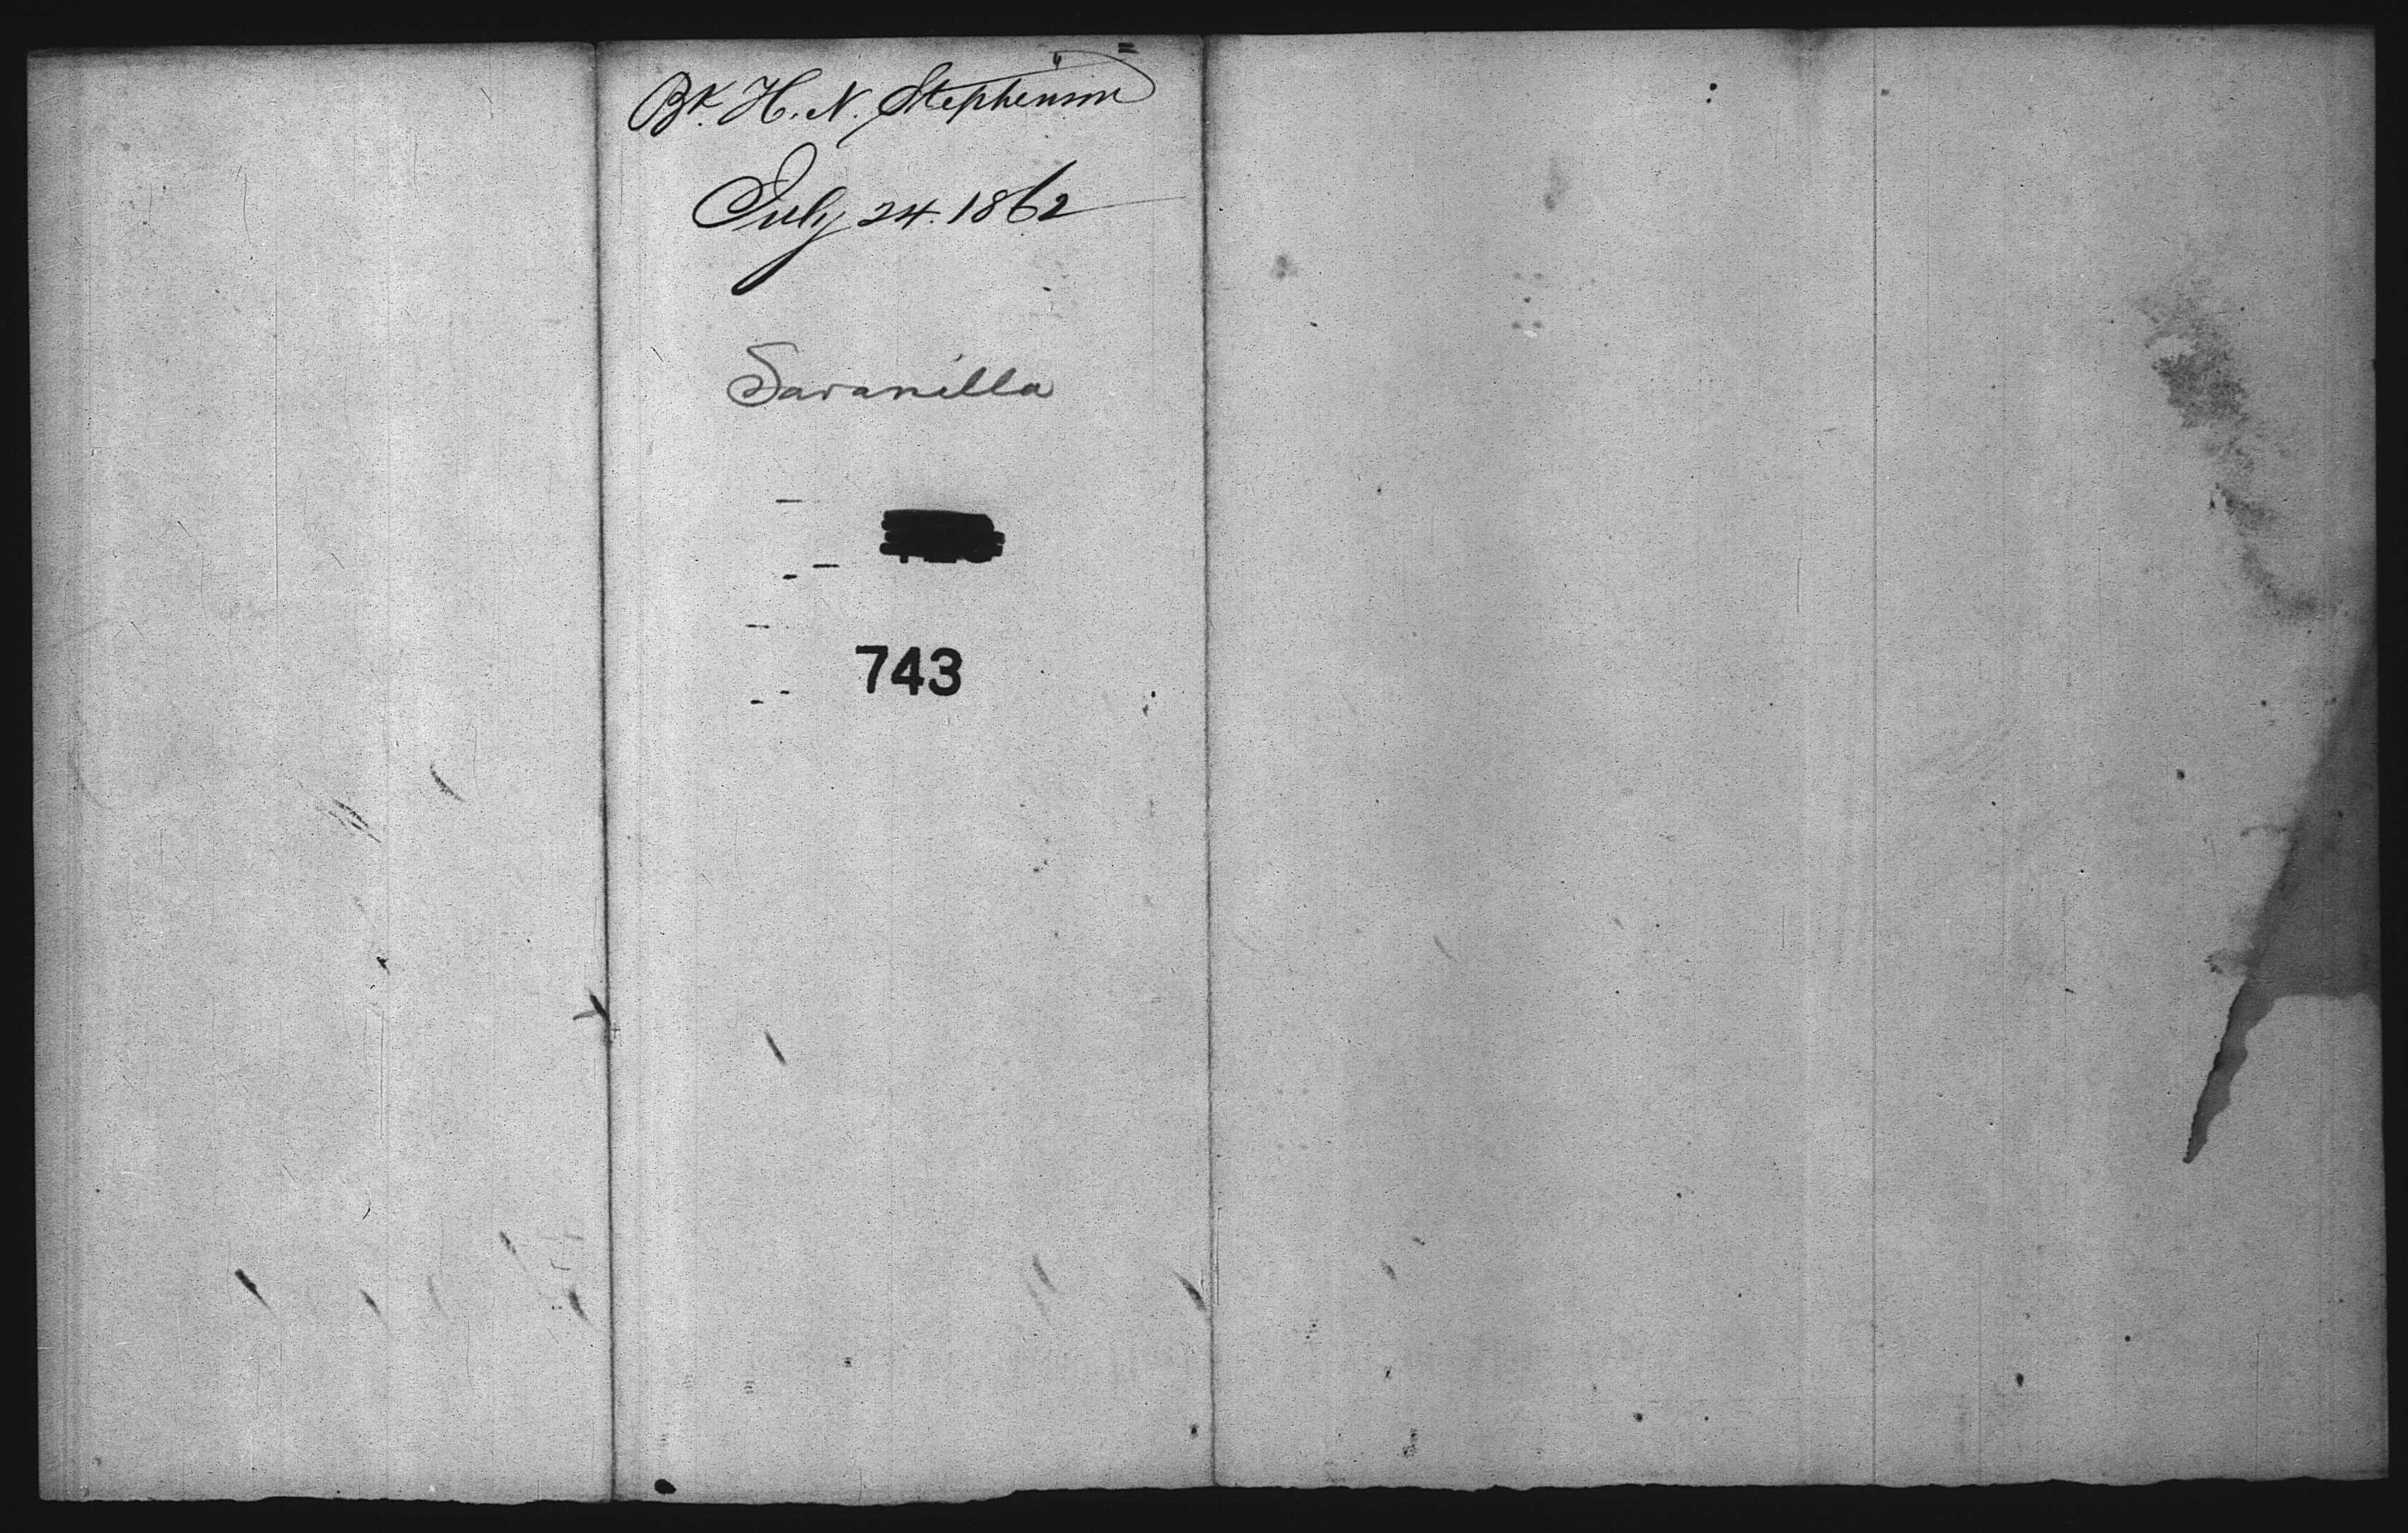 Bk. H. N. Stephenson
July 24. 1862
Savanilla
743